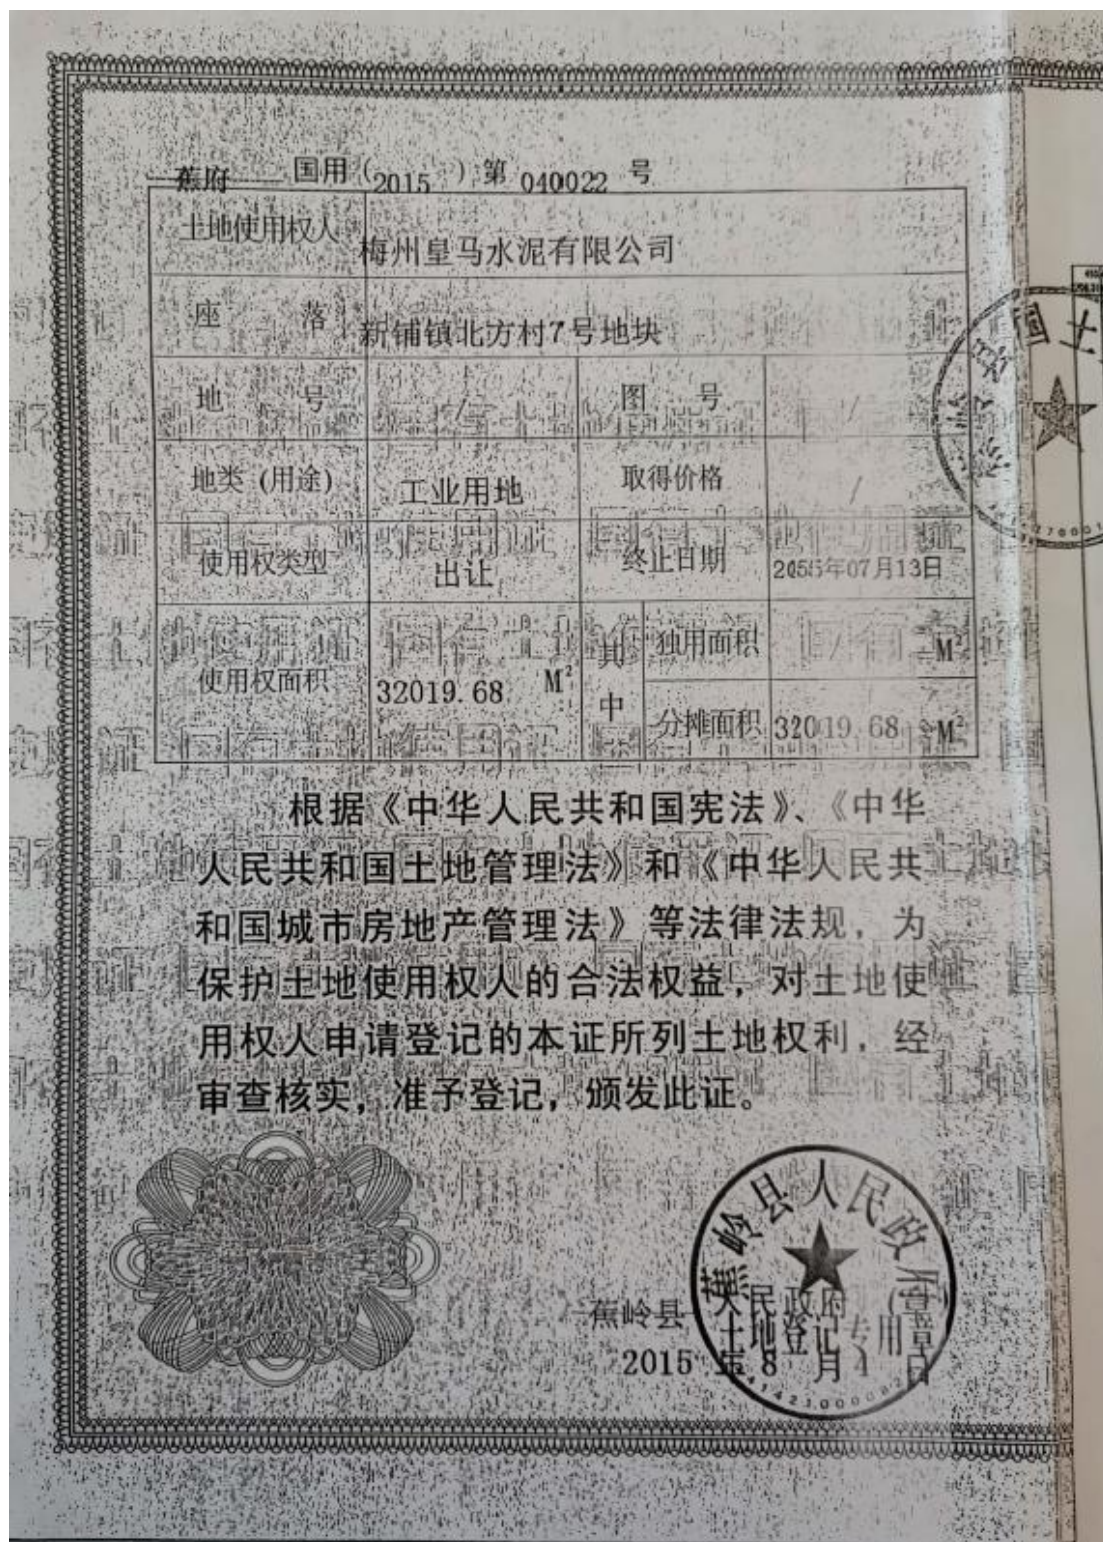 蕉府 国用(2015)第 040022 号
土地使用权人 梅州皇马水泥有限公司
座 落 新铺镇北方村7号地块
地 号 / 图 号 /
地类(用途) 工业用地 取得价格 /
使用权类型 出让 终止日期 2055年07月13日
使用权面积 32019.68 M² 其中 独用面积 / M²
分摊面积 32019.68 M²
根据《中华人民共和国宪法》、《中华
人民共和国土地管理法》和《中华人民共
和国城市房地产管理法》等法律法规，为
保护土地使用权人的合法权益，对土地使
用权人申请登记的本证所列土地权利，经
审查核实，准予登记，颁发此证。
蕉岭县人民政府
土地登记专用章
蕉岭县 人民政府（章）
2015 年 8 月 4 日
蕉岭县国土